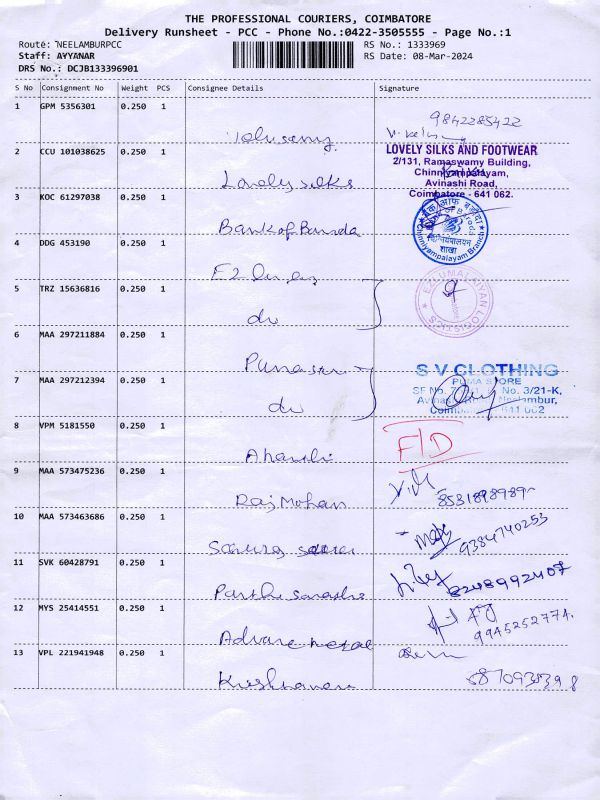 THE PROFESSIONAL COURIERS, COIMBATORE
Delivery Runsheet - PCC - Phone No.:0422-3505555 - Page No.:1
Route: NEELAMBURPCC RS No.: 1333969
Staff: AYYANAR RS Date: 08-Mar-2024
DRS No.: DCJB133396901
S No Consignment No Weight PCS Consignee Details Signature
1 GPM 5356301 0.250 1
9842285422
2 CCU 101038625 0.250 1
LOVELY SILKS AND FOOTWEAR
2/131, Ramaswamy Building,
Chinniyampalayam,
Avinashi Road,
Coimbatore - 641 062.
Lovely silks
3 KOC 61297038 0.250 1
Bank of Baroda
बैंक ऑफ बड़ौदा
Chinniyampalayam Branch
शाखा
4 DDG 453190 0.250 1
5 TRZ 15636816 0.250 1
do
EZLUMALAIYAN LOGISTICS
6 MAA 297211884 0.250 1
7 MAA 297212394 0.250 1
do
S V CLOTHING
PUMA STORE
SF No. No. 3/21-K,
Neelambur,
641 062
8 VPM 5181550 0.250 1
F/D
9 MAA 573475236 0.250 1
Raj Mohan
8531898989
10 MAA 573463686 0.250 1
9384740253
11 SVK 60428791 0.250 1
Parthi sarathi
8248992407
12 MYS 25414551 0.250 1
Advance metal
9945252774.
13 VPL 221941948 0.250 1